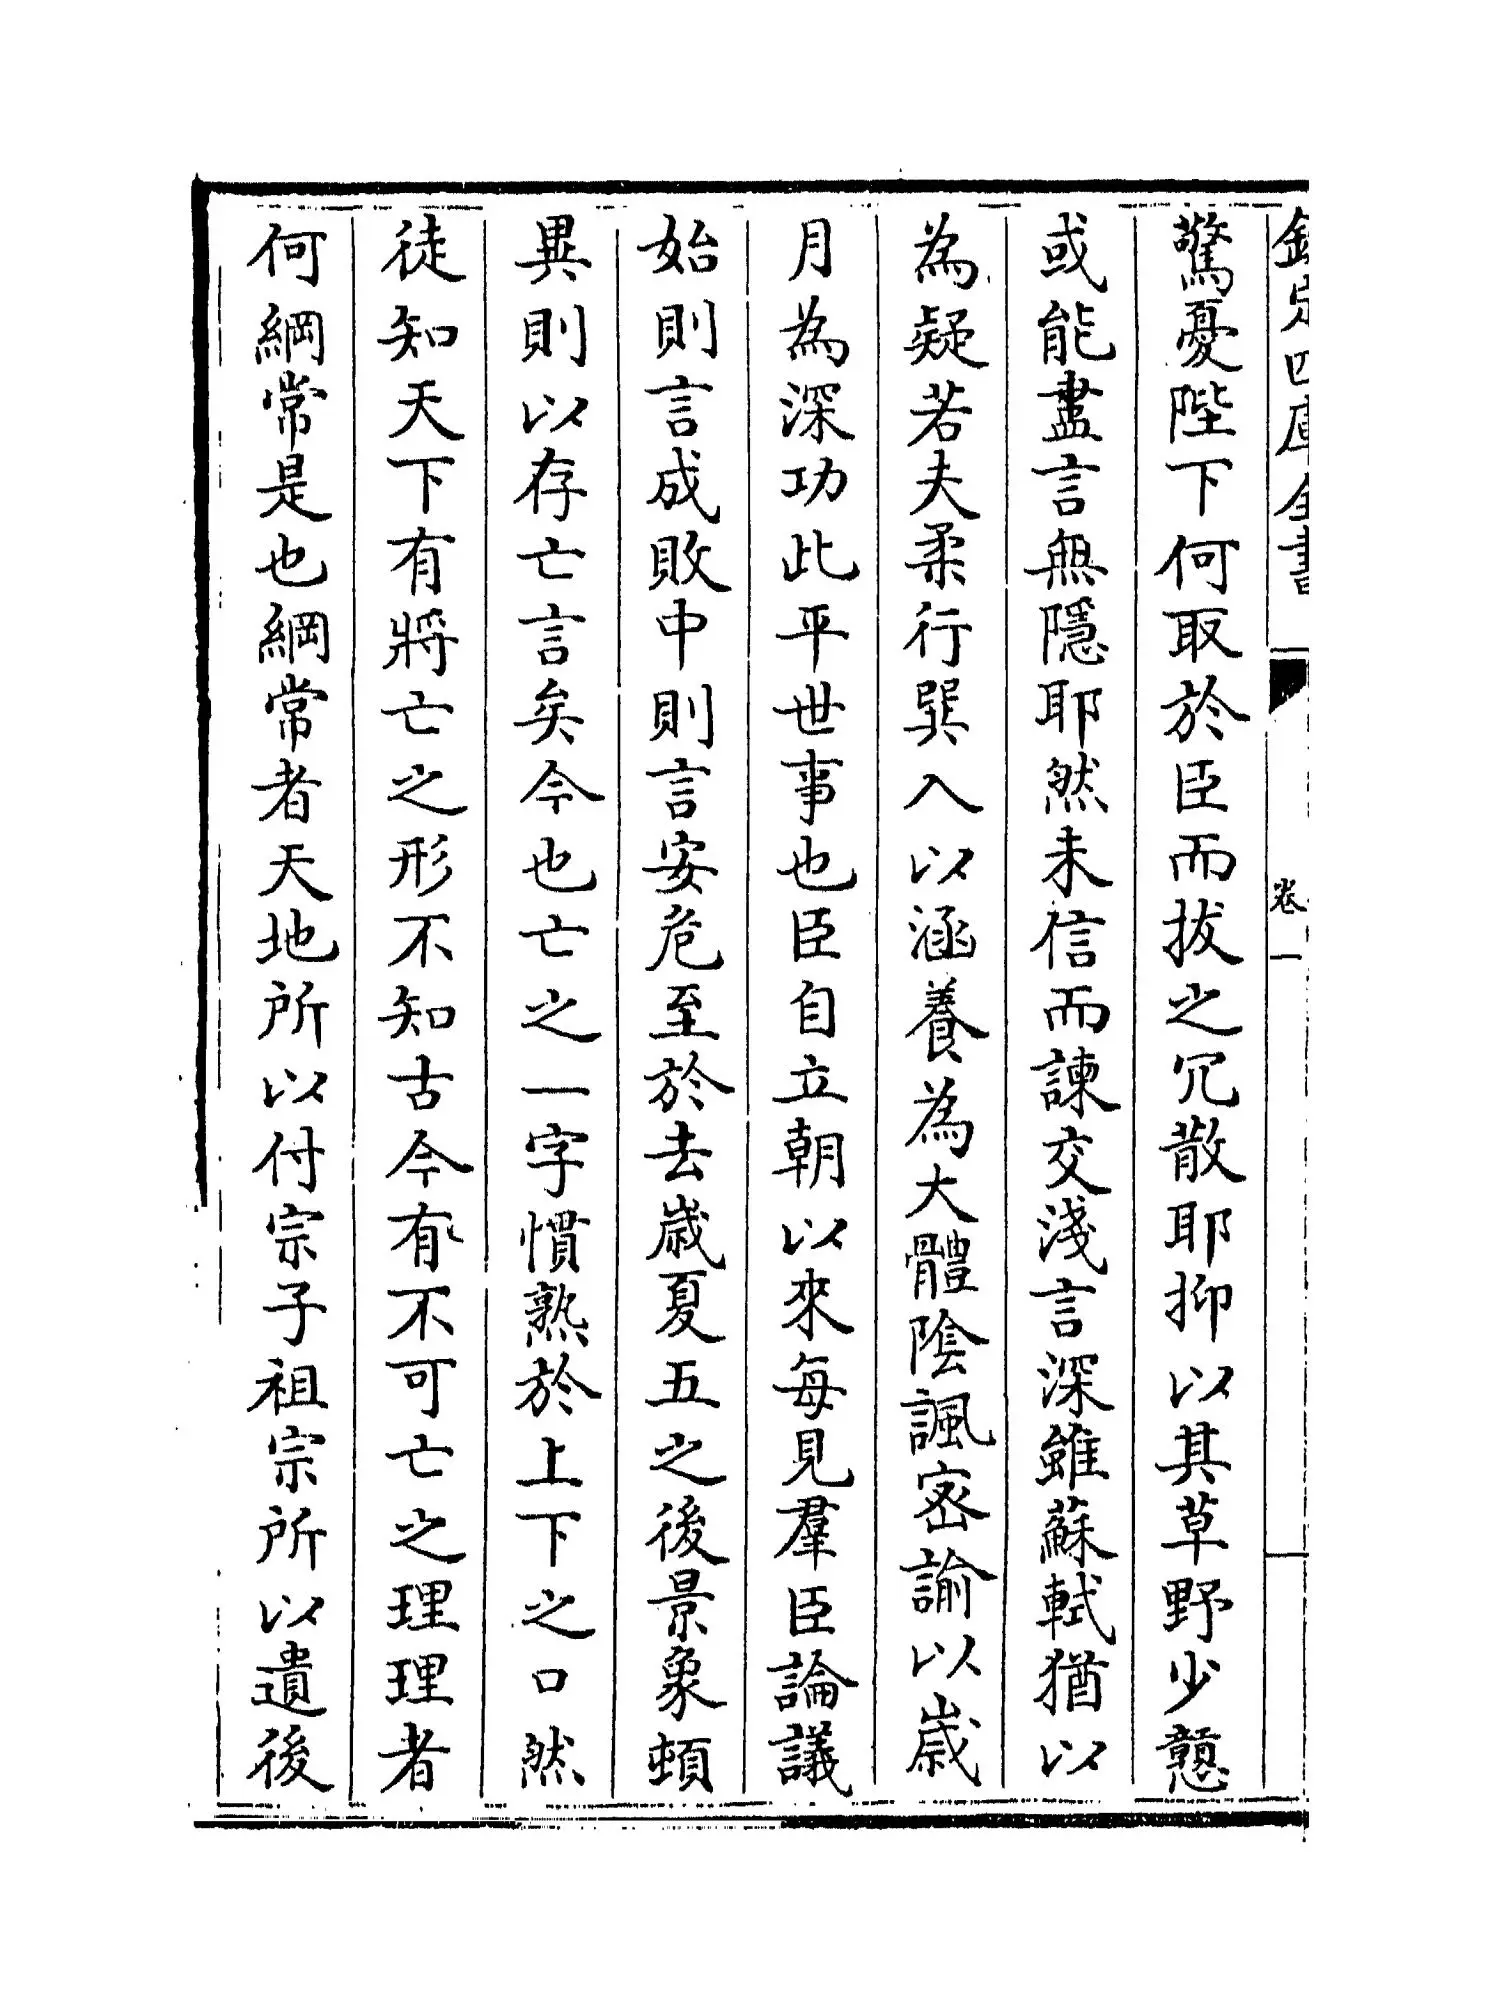 欽定四庫全書
卷一
驚憂陛下何取於臣而拔之冗散耶抑以其草野少戇
或能盡言無隱耶然未信而諫交淺言深雖蘇軾猶以
為疑若夫柔行巽入以涵養為大體陰諷密諭以歲
月為深功此平世事也臣自立朝以來每見羣臣論議
始則言成敗中則言安危至於去歲夏五之後景象頓
異則以存亡言矣今也亡之一字慣熟於上下之口然
徒知天下有將亡之形不知古今有不可亡之理理者
何綱常是也綱常者天地所以付宗子祖宗所以遺後